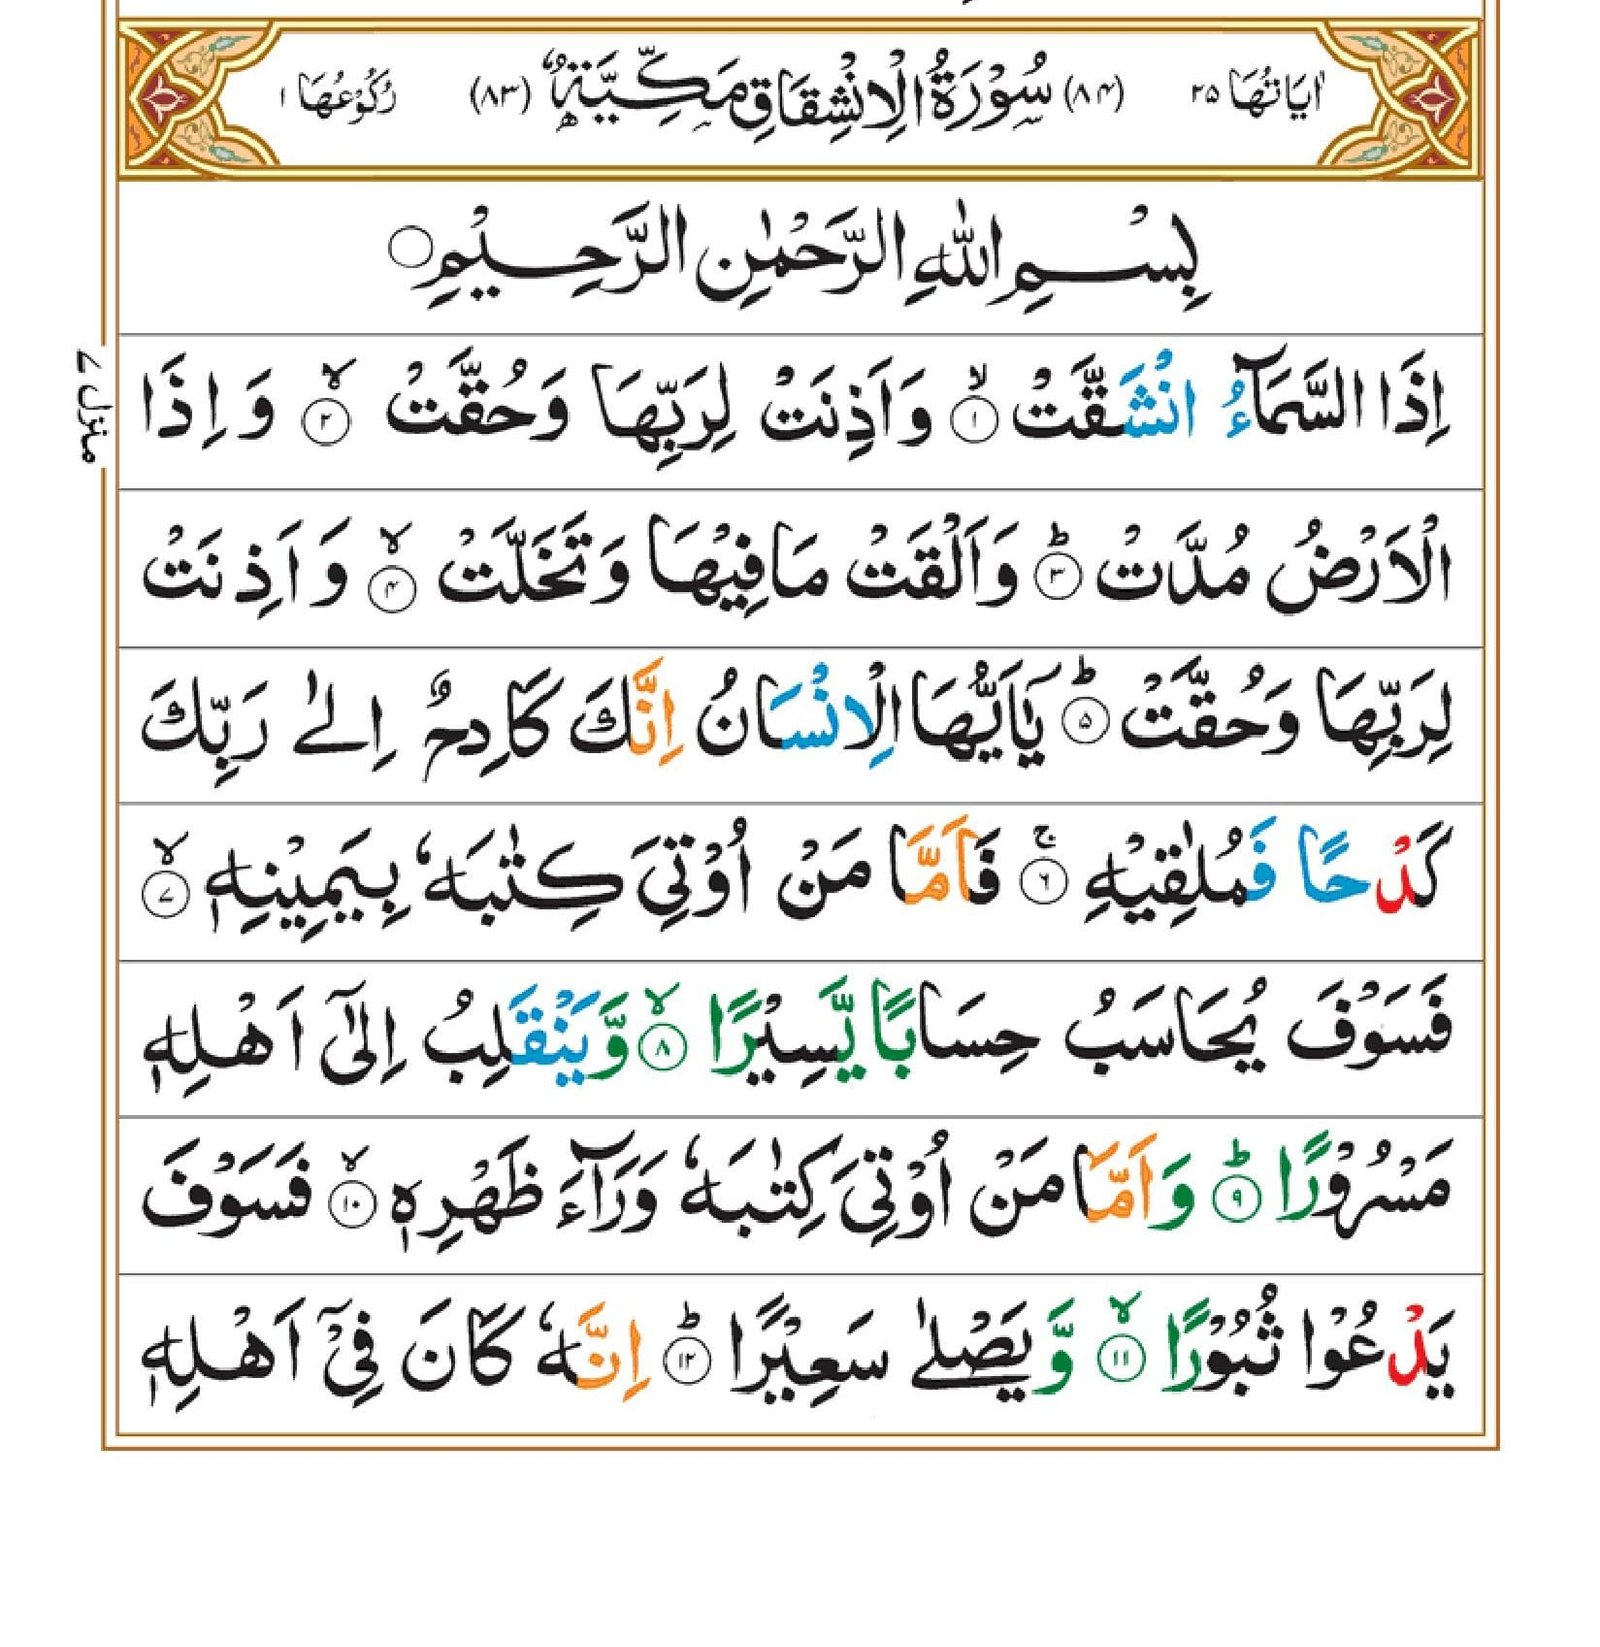 اٰيَاتُهَا ٢٥ (٨٤) سُوْرَةُ الْاِنْشِقَاقِ مَكِّيَّةٌ (٨٣) رُكُوْعُهَا ١
بِسْمِ اللّٰهِ الرَّحْمٰنِ الرَّحِيْمِ
اِذَا السَّمَآءُ انْشَقَّتْۙ ١ وَاَذِنَتْ لِرَبِّهَا وَحُقَّتْۙ ٢ وَاِذَا
منزل ٧
الْاَرْضُ مُدَّتْؕ ٣ وَاَلْقَتْ مَا فِيْهَا وَتَخَلَّتْۙ ٤ وَاَذِنَتْ
لِرَبِّهَا وَحُقَّتْؕ ٥ يٰۤاَيُّهَا الْاِنْسَانُ اِنَّكَ كَادِحٌ اِلٰى رَبِّكَ
كَدْحًا فَمُلٰقِيْهِۚ ٦ فَاَمَّا مَنْ اُوْتِيَ كِتٰبَهٗ بِيَمِيْنِهٖۙ ٧
فَسَوْفَ يُحَاسَبُ حِسَابًا يَّسِيْرًاۙ ٨ وَّيَنْقَلِبُ اِلٰٓى اَهْلِهٖ
مَسْرُوْرًاؕ ٩ وَاَمَّا مَنْ اُوْتِيَ كِتٰبَهٗ وَرَآءَ ظَهْرِهٖۙ ١٠ فَسَوْفَ
يَدْعُوْا ثُبُوْرًاۙ ١١ وَّيَصْلٰى سَعِيْرًاؕ ١٢ اِنَّهٗ كَانَ فِيْۤ اَهْلِهٖ